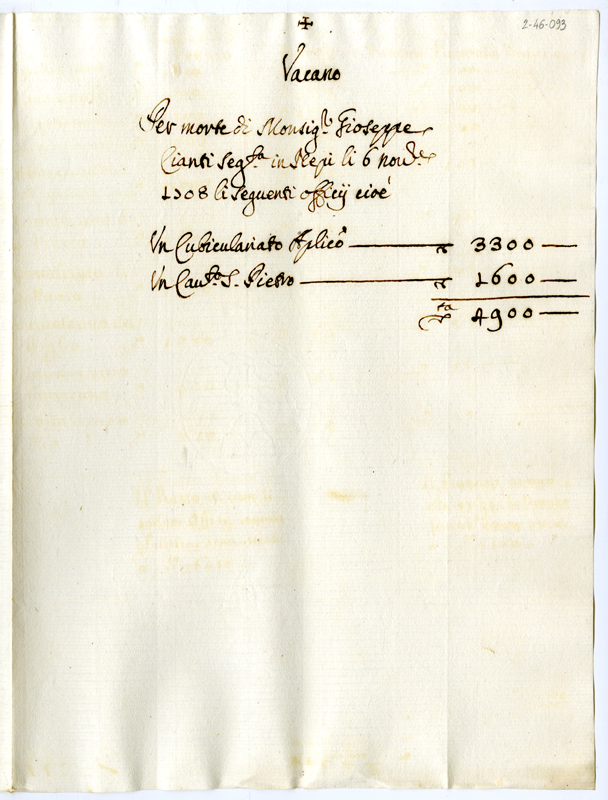 ✠
2-46-093
Vacano
Per morte di Monsig.r Gioseppe
Cianti seg.ta in Nepi li 6 nov.re
1708 li seguenti officij cioè
Un Cubiculariato Aplico 3300
Un Cau.to S. Pietro 1600
4900